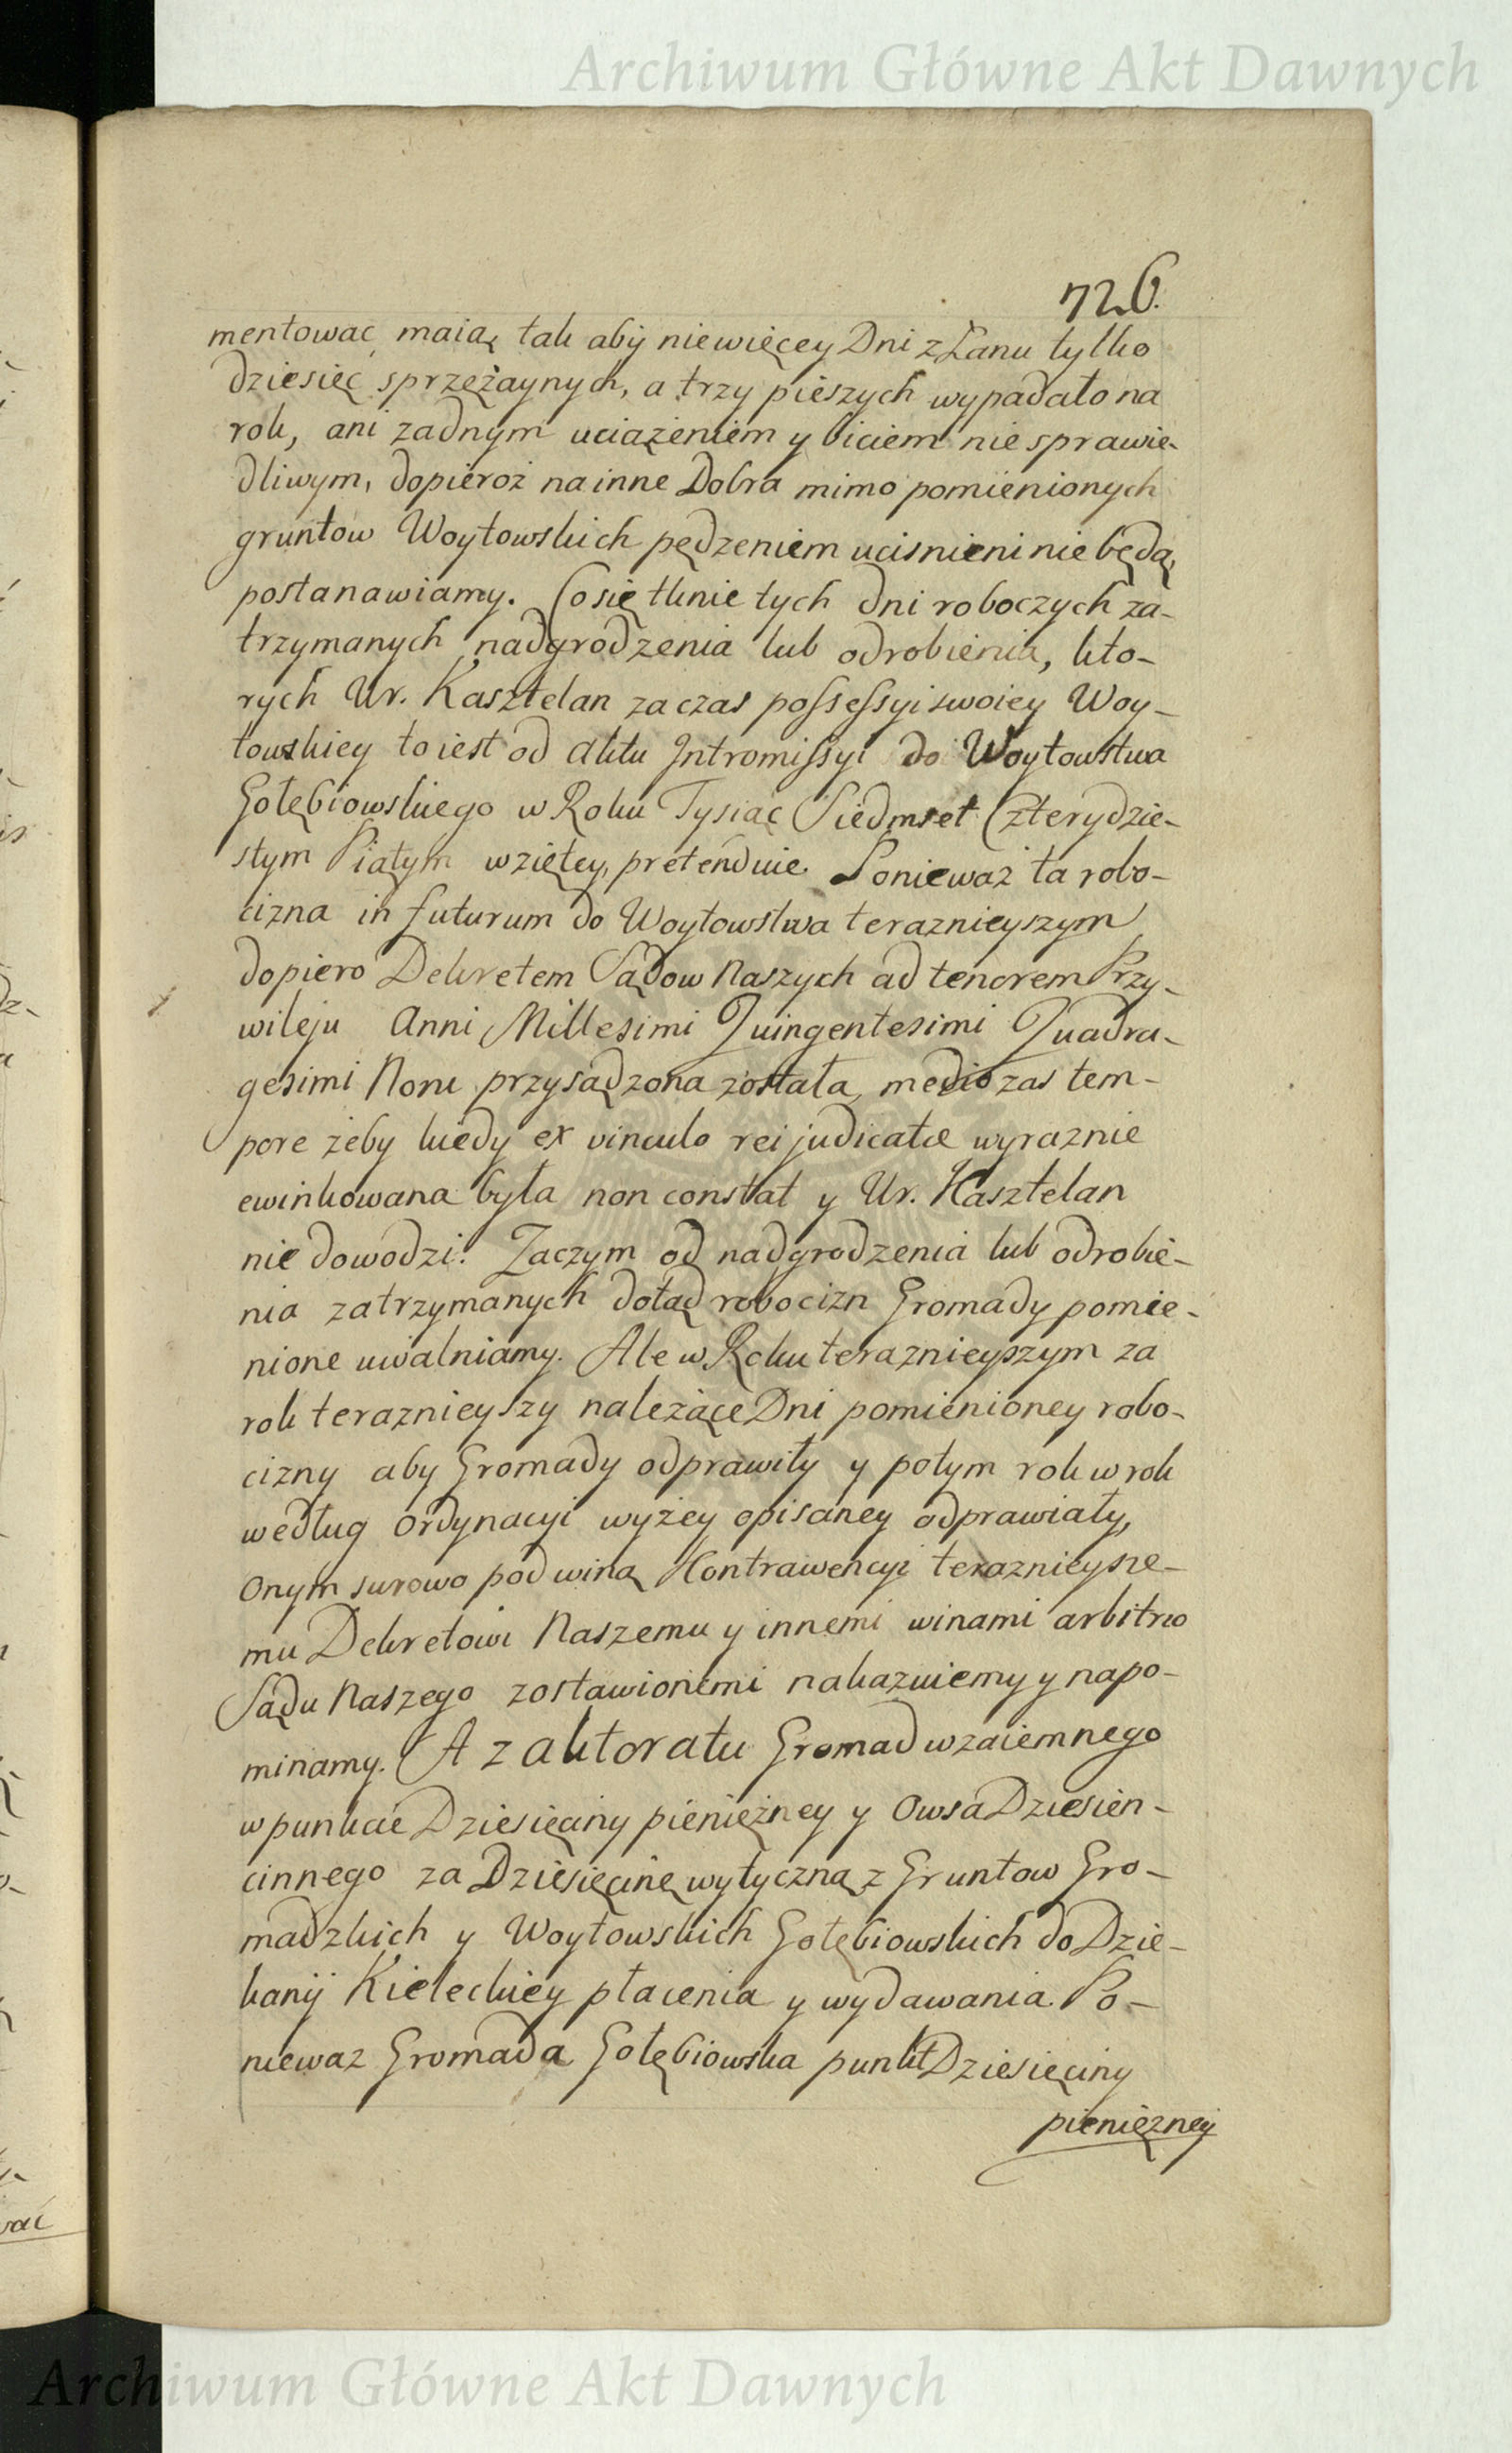 Archiwum Główne Akt Dawnych
726.
mentować maią, tak aby niewięcey Dni z Łanu tylko
dziesięć sprzężaynych, a trzy pieszych wypadało na
rok, ani żadnym uciążeniem y biciem nie sprawie-
dliwym, dopieroż na inne Dobra mimo pomienionych
gruntow Woytowskich pędzeniem ucisnieni nie będą,
postanawiamy. Co się tknie tych dni roboczych za-
trzymanych nadgrodzenia lub odrobienia, kto-
rych Ur. Kasztelan za czas possessyi swoiey Woy-
towskiey to iest od aktu Intromissyi do Woytowstwa
Gołębiowskiego w Roku Tysiąc Siedmset Czterydzie-
stym Piątym wziętey, pretenduie. Ponieważ ta robo-
cizna in futurum do Woytowstwa teraznieyszym
dopiero Dekretem Sądow Naszych ad tenorem Przy-
wileju Anni Millesimi Quingentesimi Quadra-
gesimi Noni przysądzona została, medio zas tem-
pore żeby kiedy ex vinculo rei judicatæ wyraznie
ewinkowana była non constat y Ur. Kasztelan
nie dowodzi. Zaczym od nadgrodzenia lub odrobie-
nia zatrzymanych dotąd robocizn Gromady pomie-
nione uwalniamy. Ale w Roku teraznieyszym za
rok teraznieyszy należące Dni pomienioney robo-
cizny aby Gromady odprawiły y potym rok w rok
według Ordynacyi wyżey opisaney odprawiały,
onym surowo pod winą Kontrawencyi teraznieysze-
mu Dekretowi Naszemu y innemi winami arbitrio
Sądu Naszego zostawionemi nakazuiemy y napo-
minamy. A z aktoratu Gromad wzaiemnego
w punkcie Dziesięciny pieniężney y Owsa Dziesien-
cinnego za Dziesięcinę wytyczną z Gruntow Gro-
madzkich y Woytowskich Gołębiowskich do Dzie-
kanij Kieleckiey płacenia y wydawania. Po-
niewaz Gromada Gołębiowska punkt Dziesięciny
pieniężney
Archiwum Główne Akt Dawnych